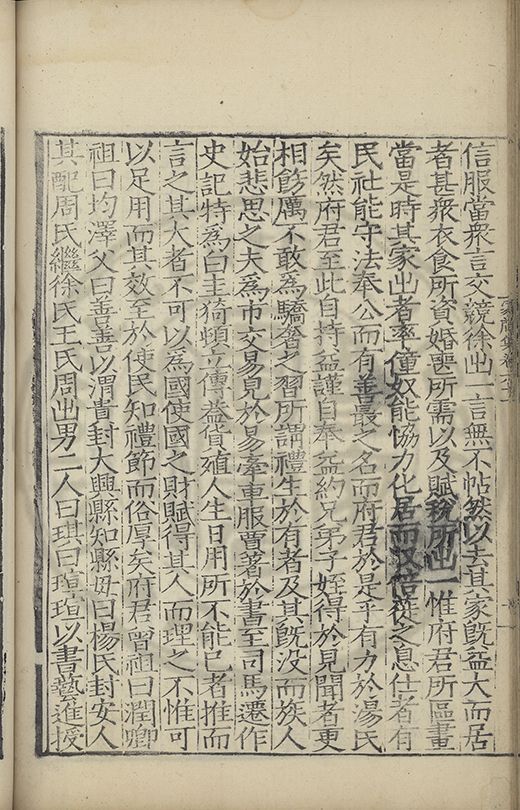 信服當衆言交競徐出一言無不帖然以去其家旣益大而居
者甚衆衣食所資婚喪所需以及賦稅所出一惟府君所區畫
當是時其家出者率僮奴能協力化居而收倍蓰之息仕者有
民社能守法奉公而有善最之名而府君於是乎有力於湯氏
矣然府君至此自持益謹自奉益約兄弟子姪得於見聞者更
相飭厲不敢為驕奢之習所謂禮生於有者及其旣没而族人
始悲思之夫為市交易見於易牽車服賈著於書至司馬遷作
史記特為白圭猗頓立傳葢貨殖人生日用所不能已者推而
言之其大者不可以為國使國之財賦得其人而理之不惟可
以足用而其效至於使民知禮節而俗厚矣府君曾祖曰潤卿
祖曰均澤父曰善善以渭貴封大興縣知縣毋曰楊氏封安人
其配周氏繼徐氏王氏周出男二人曰琪曰瑄瑄以書藝進授